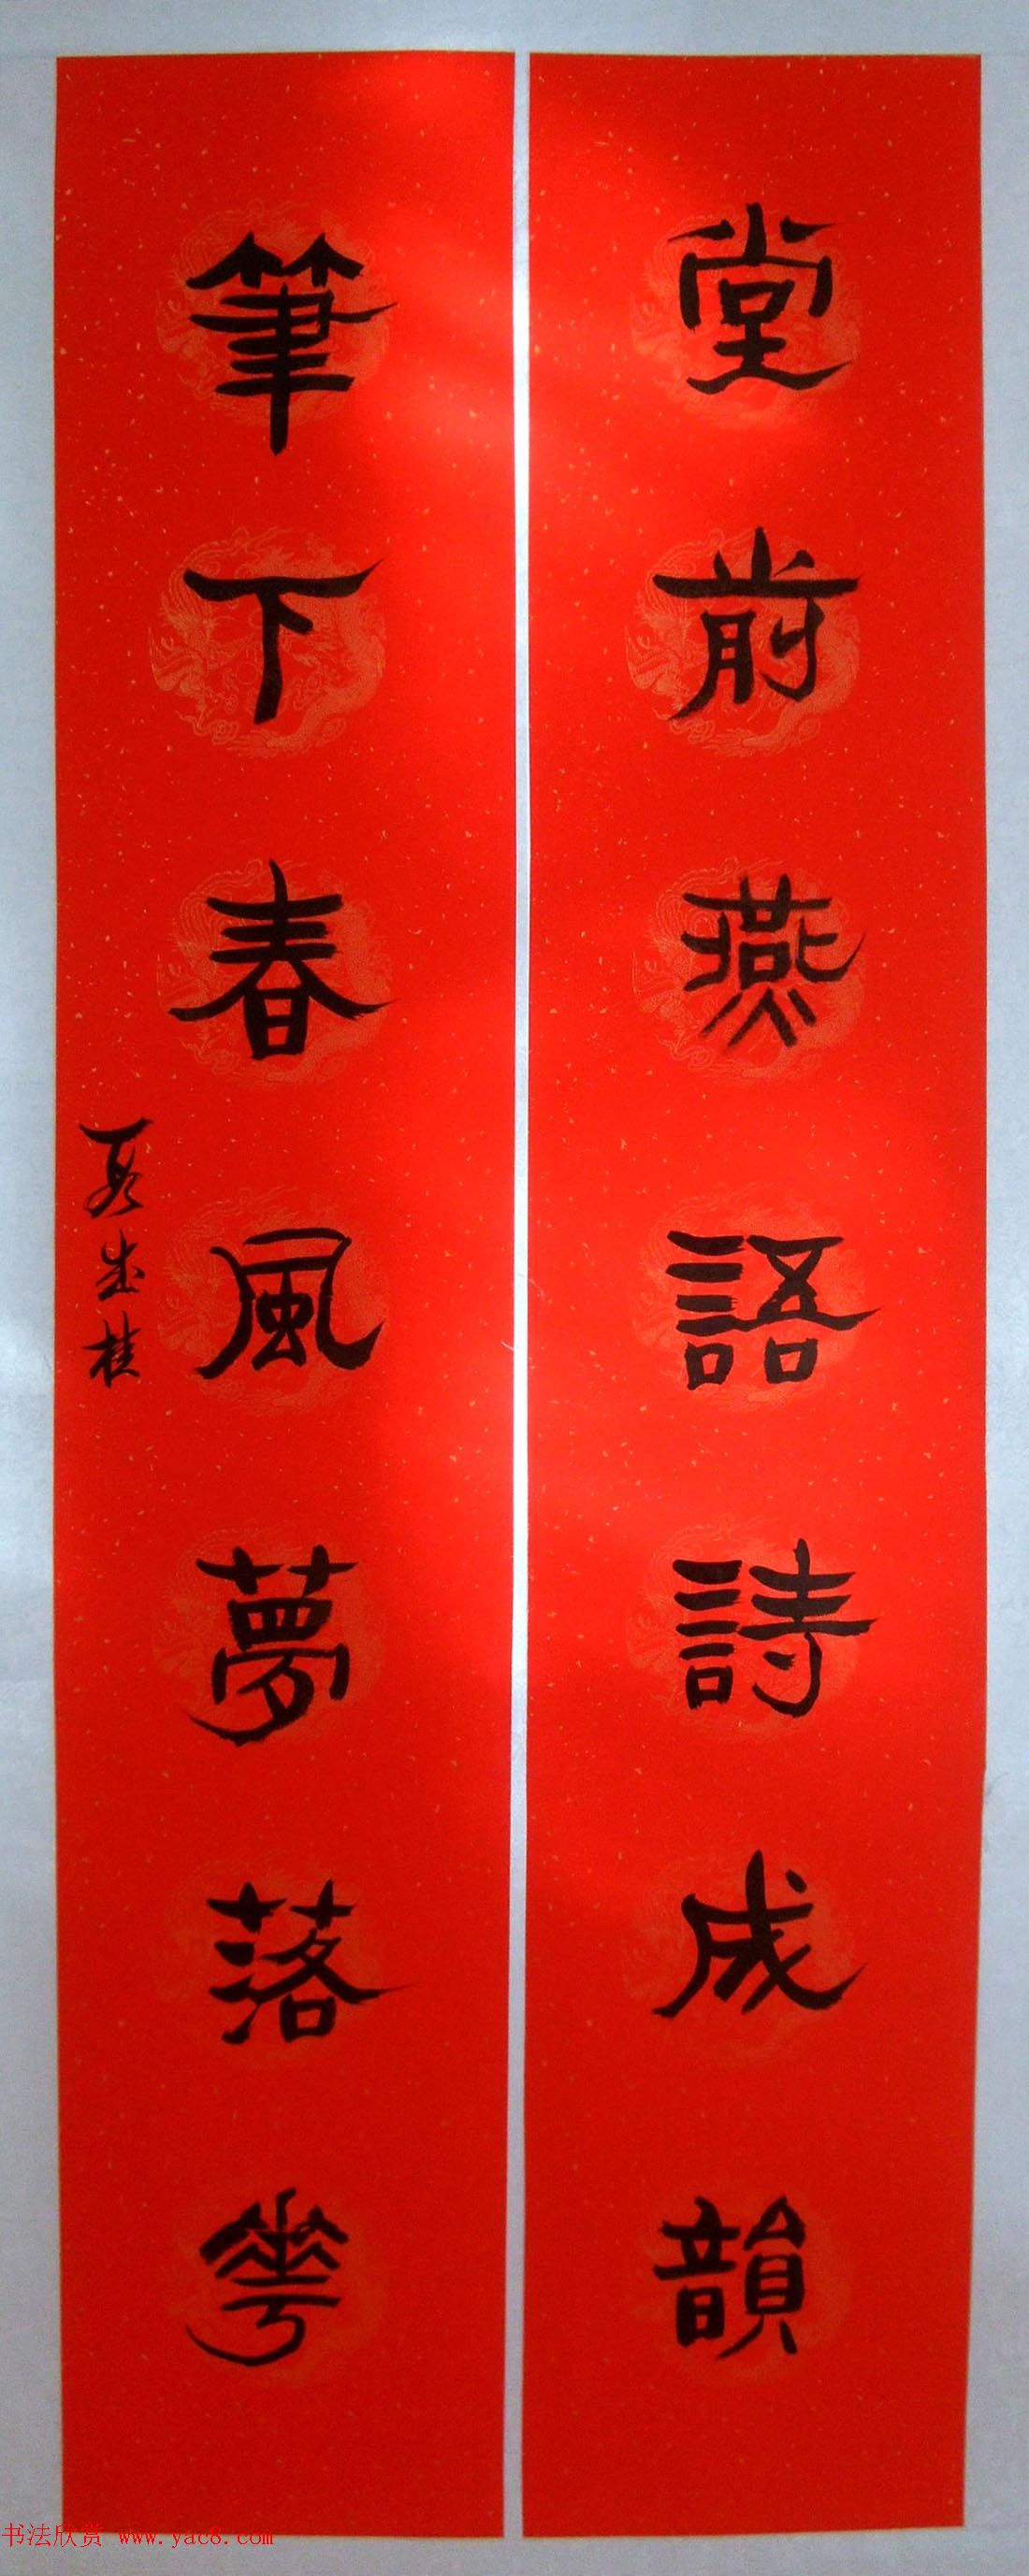 堂前燕語詩成韻
筆下春風夢落華
书法欣赏 www.yac8.com